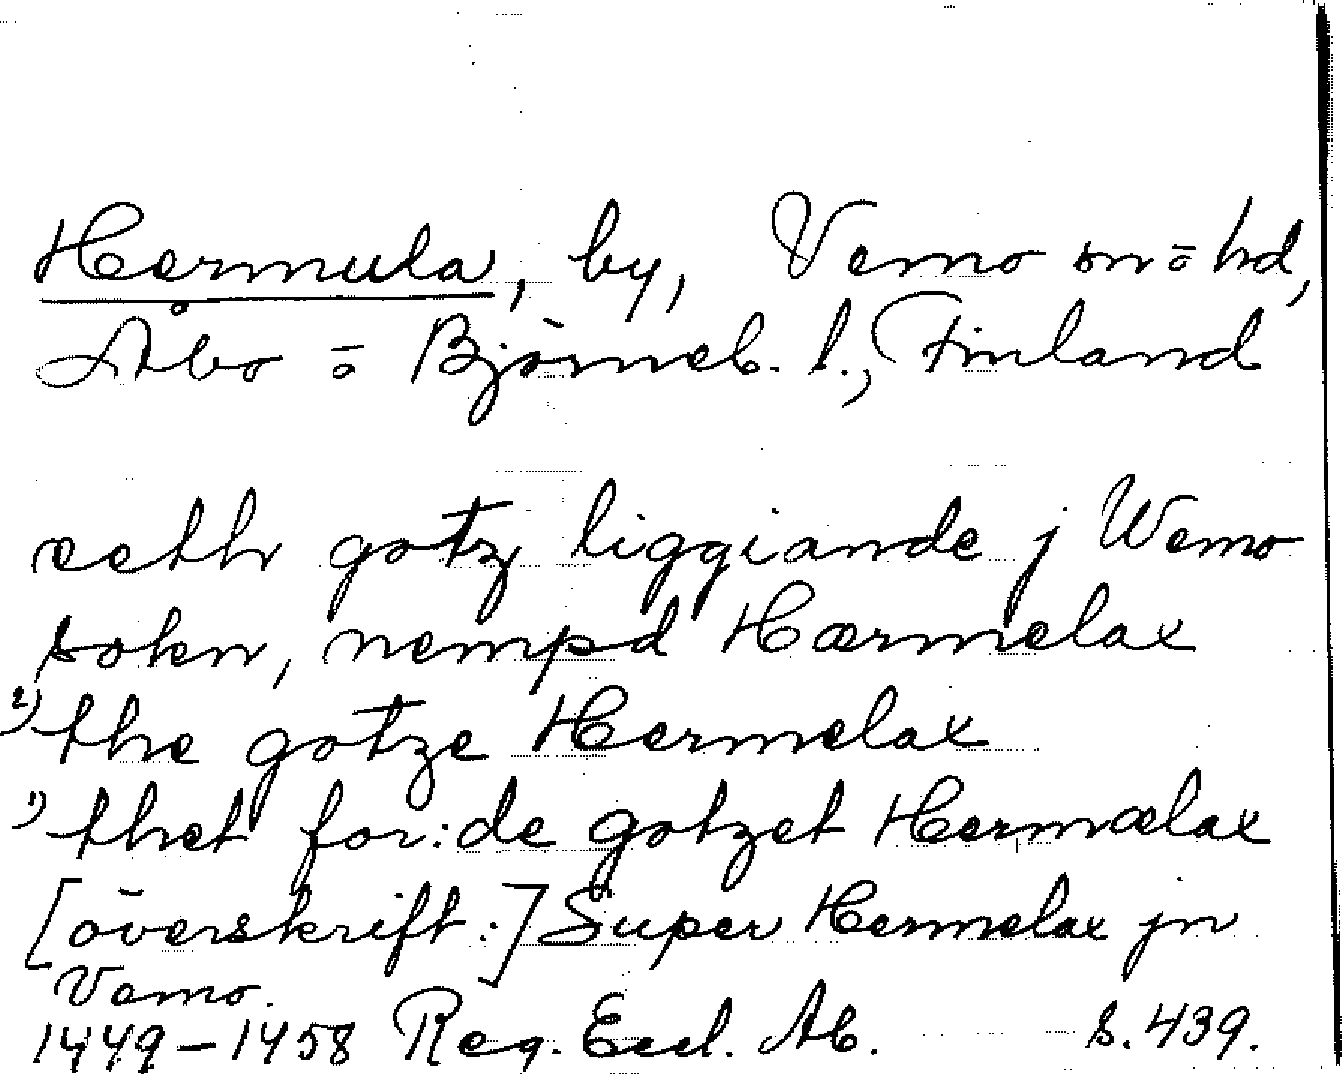 Hermula, by, Vemo sn o hd,
Åbo o Björneb. l., Finland
eeth gotz liggiande j Wemo
sokn, nempd Hærmelax
2) the gotze Hermelax
1) thet for:de gotzet Hermælax
[överskrift:] Super Hermelax jn
Vemo.
1449-1458 Reg. Eccl. Ab. s. 439.